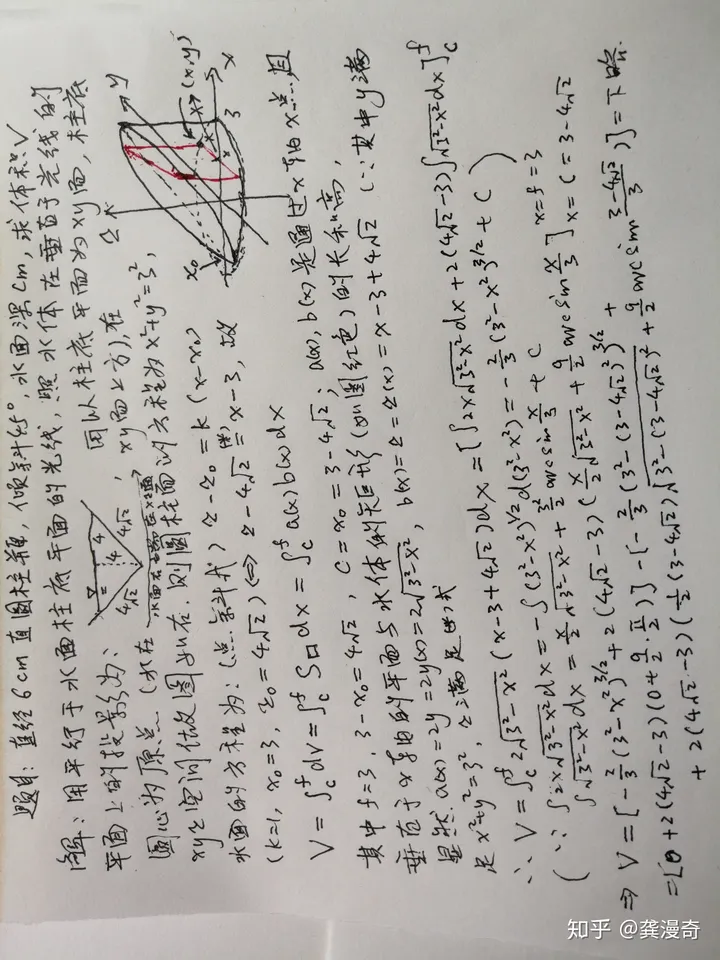 题目：直径6cm直圆柱瓶，倾斜45°，水面深4cm，求体积V
解：用平行于水面柱底平面的光线，照水体在垂直于光线的
平面上的投影为： 4 4 4√2 4√2 ， 再以柱底平面为xy面，柱底
圆心为原点（水在xy面上方），在
xyz空间做图如右. 则圆柱面的方程为x²+y²=3²，
水面的方程为：（点斜式）z-z₀=k(x-x₀)
(k=1, x₀=3, z₀=4√2) ⇔ z-4√2=x-3，故
V=∫_c^f dV=∫_c^f S□dx=∫_c^f a(x)b(x)dx
其中f=3, 3-x₀=4√2, c=x₀=3-4√2; a(x), b(x)是通过x轴x点且
垂直于x轴的平面与水体的矩形（如图红色）的长和高，
显然 a(x)=2y=2y(x)=2√(3²-x²), b(x)=z=z(x)=x-3+4√2 （∵其中y满
足x²+y²=3², z满足 式）
∴V=∫_c^f 2√(3²-x²)(x-3+4√2)dx=[∫2x√(3²-x²)dx+2(4√2-3)∫√(3²-x²)dx]_c^f
（∵∫2x√(3²-x²)dx=-∫(3²-x²)^{1/2}d(3²-x²)=-2/3(3²-x²)^{3/2}+C）
∫√(3²-x²)dx=x/2√(3²-x²)+3²/2 arcsin x/3+C
⇒V=[-2/3(3²-x²)^{3/2}+2(4√2-3)(x/2√(3²-x²)+9/2 arcsin x/3] x=f=3 x=c=3-4√2
=[0+2(4√2-3)(0+9/2·π/2)]-[-2/3(3²-(3-4√2)²)^{3/2}+
+2(4√2-3)(1/2(3-4√2)√(3²-(3-4√2)²)+9/2 arcsin (3-4√2)/3)]=下略.
z
y
x
x₀
3
(x,y)
x
知乎 @龚漫奇